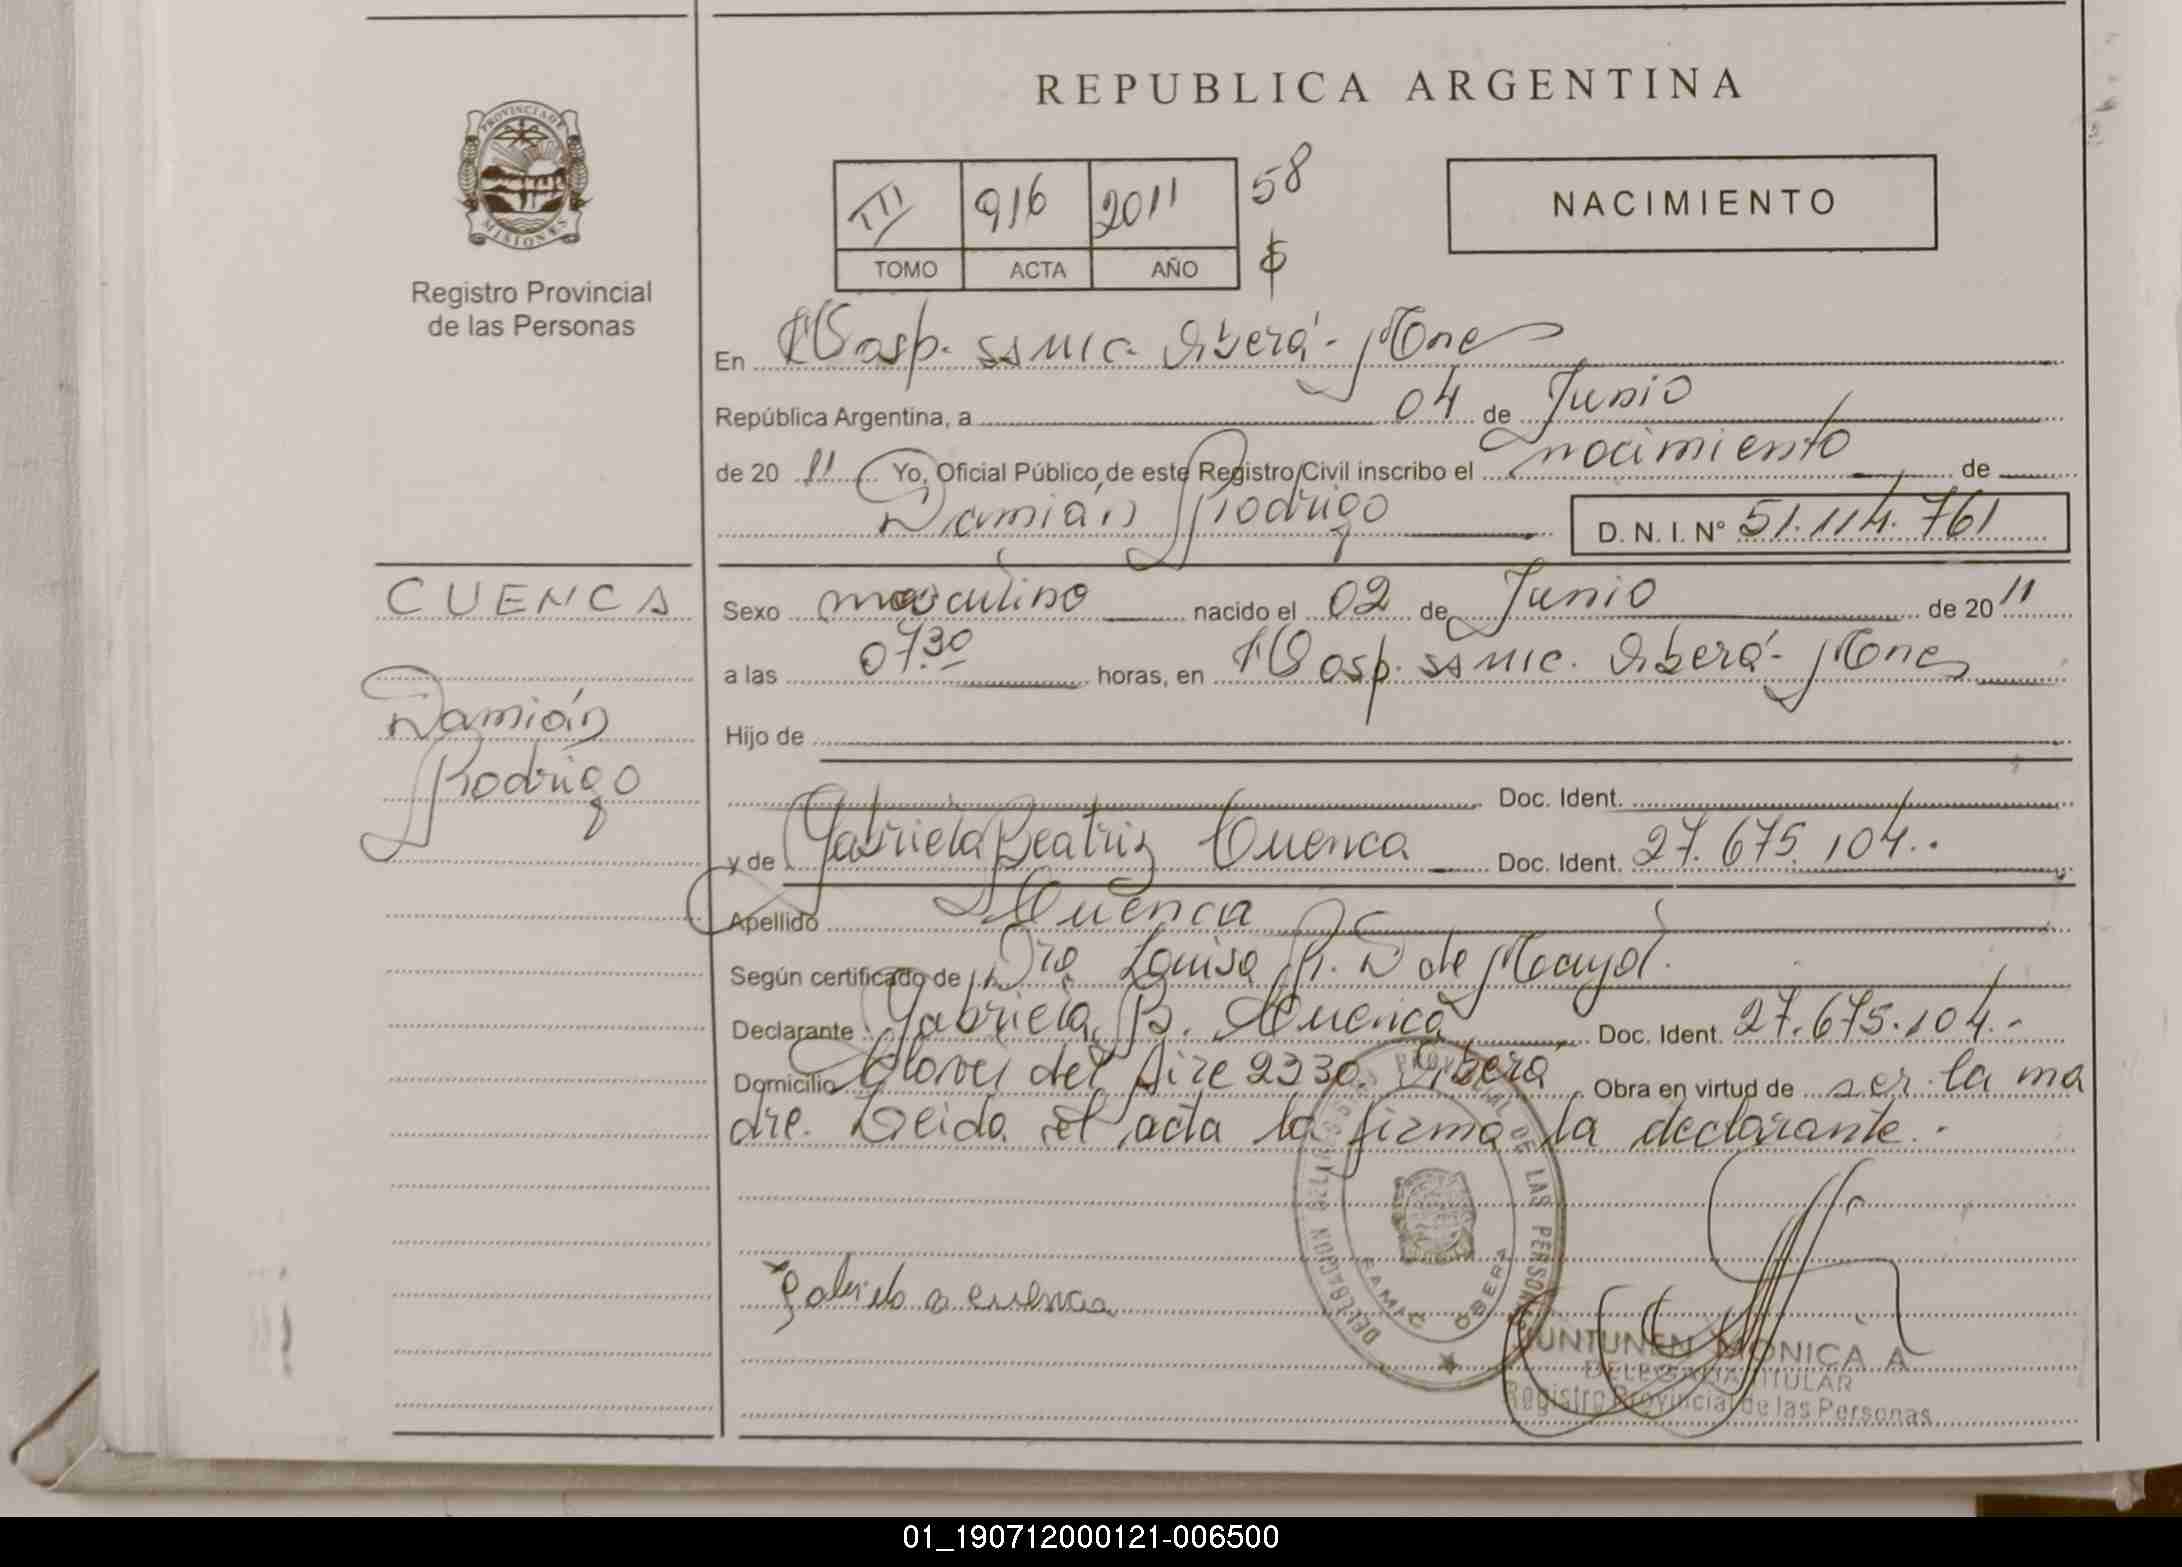 REPUBLICA ARGENTINA
PROVINCIA DE
MISIONES
Registro Provincial
de las Personas
III 916 2011 58
TOMO ACTA AÑO
NACIMIENTO
En Hosp. SSMIC. Oberá - Mnes
República Argentina, a 04 de Junio
de 20 11 Yo, Oficial Público de este Registro Civil inscribo el nacimiento de
Damián Rodrigo D. N. I. Nº 51.114.761
CUENCA
Damián
Rodrigo
Sexo masculino nacido el 02 de Junio de 20 11
a las 07.30 horas, en Hosp. SSMIC. Oberá - Mnes
Hijo de
Doc. Ident.
y de Gabriela Beatriz Cuenca Doc. Ident. 27.675.104.-
Apellido Cuenca
Según certificado de Dra Luisa R. D de Mayol.
Declarante Gabriela B. Cuenca Doc. Ident. 27.675.104.-
Domicilio del Aire 2330. Oberá Obra en virtud de ser la ma
dre. Leida el acta la firma la declarante.-
DELEGACION DEL REGISTRO PROVINCIAL DE LAS PERSONAS
OBERA
Gabriela B Cuenca
JUNTUNEN MONICA A
DELEGADA TITULAR
Registro Provincial de las Personas
01_190712000121-006500